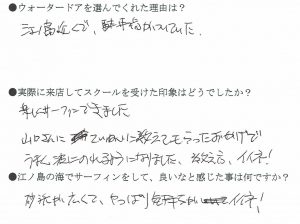 ●ウォータードアを選んでくれた理由は？
江ノ島近くで、駐車場がついていた。
●実際に来店してスクールを受けた印象はどうでしたか？
楽しくサーフィンできました
山口さんに ていねいに教えてもらったおかげで
うまく波にのれるようになりました。 教え方、イイネ！
●江ノ島の海でサーフィンをして、良いなと感じた事は何ですか？
砂浜が広くて、やっぱり気持ちいい イイネ！